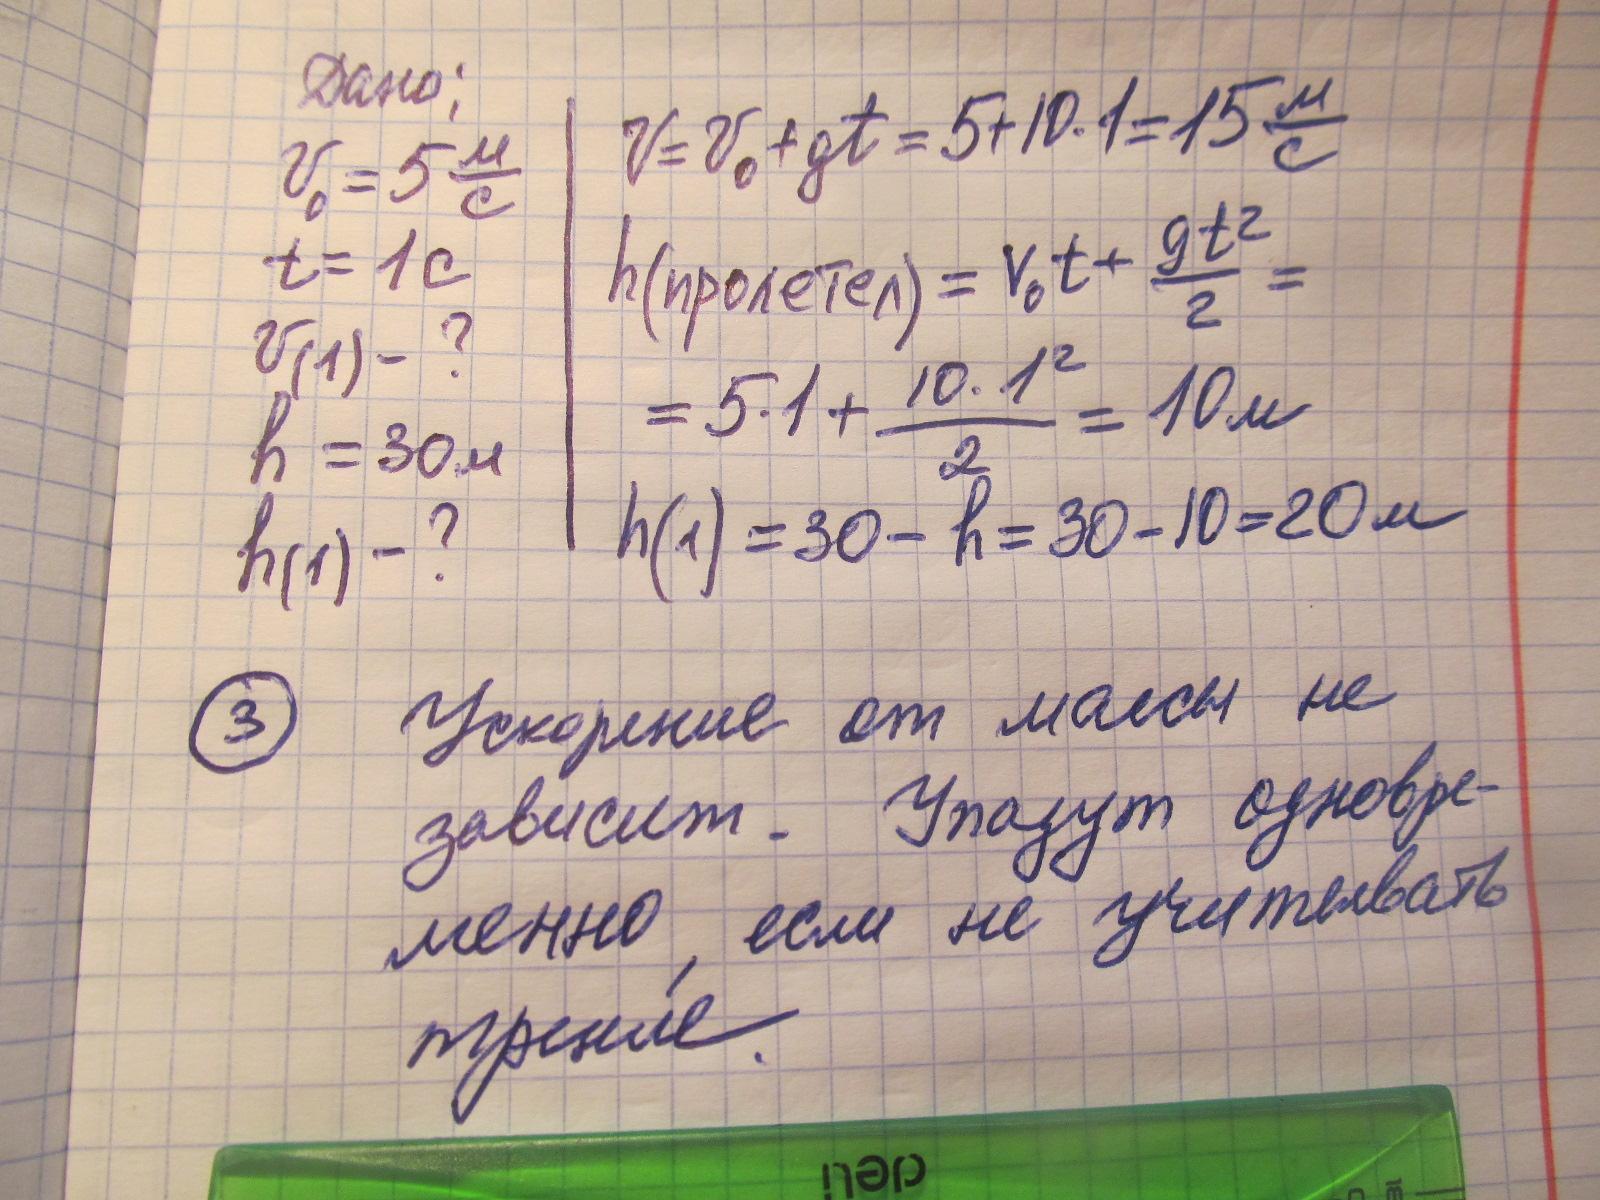 Дано:
v₀ = 5 м/с
t = 1 с
v(1) - ?
h = 30 м
h(1) - ?
v = v₀ + gt = 5 + 10 · 1 = 15 м/с
h(пролетел) = v₀t + gt²/2 =
= 5 · 1 + 10 · 1²/2 = 10 м
h(1) = 30 - h = 30 - 10 = 20 м
3 Ускорение от массы не
зависит. Упадут одновре-
менно, если не учитывать
трение.
deli